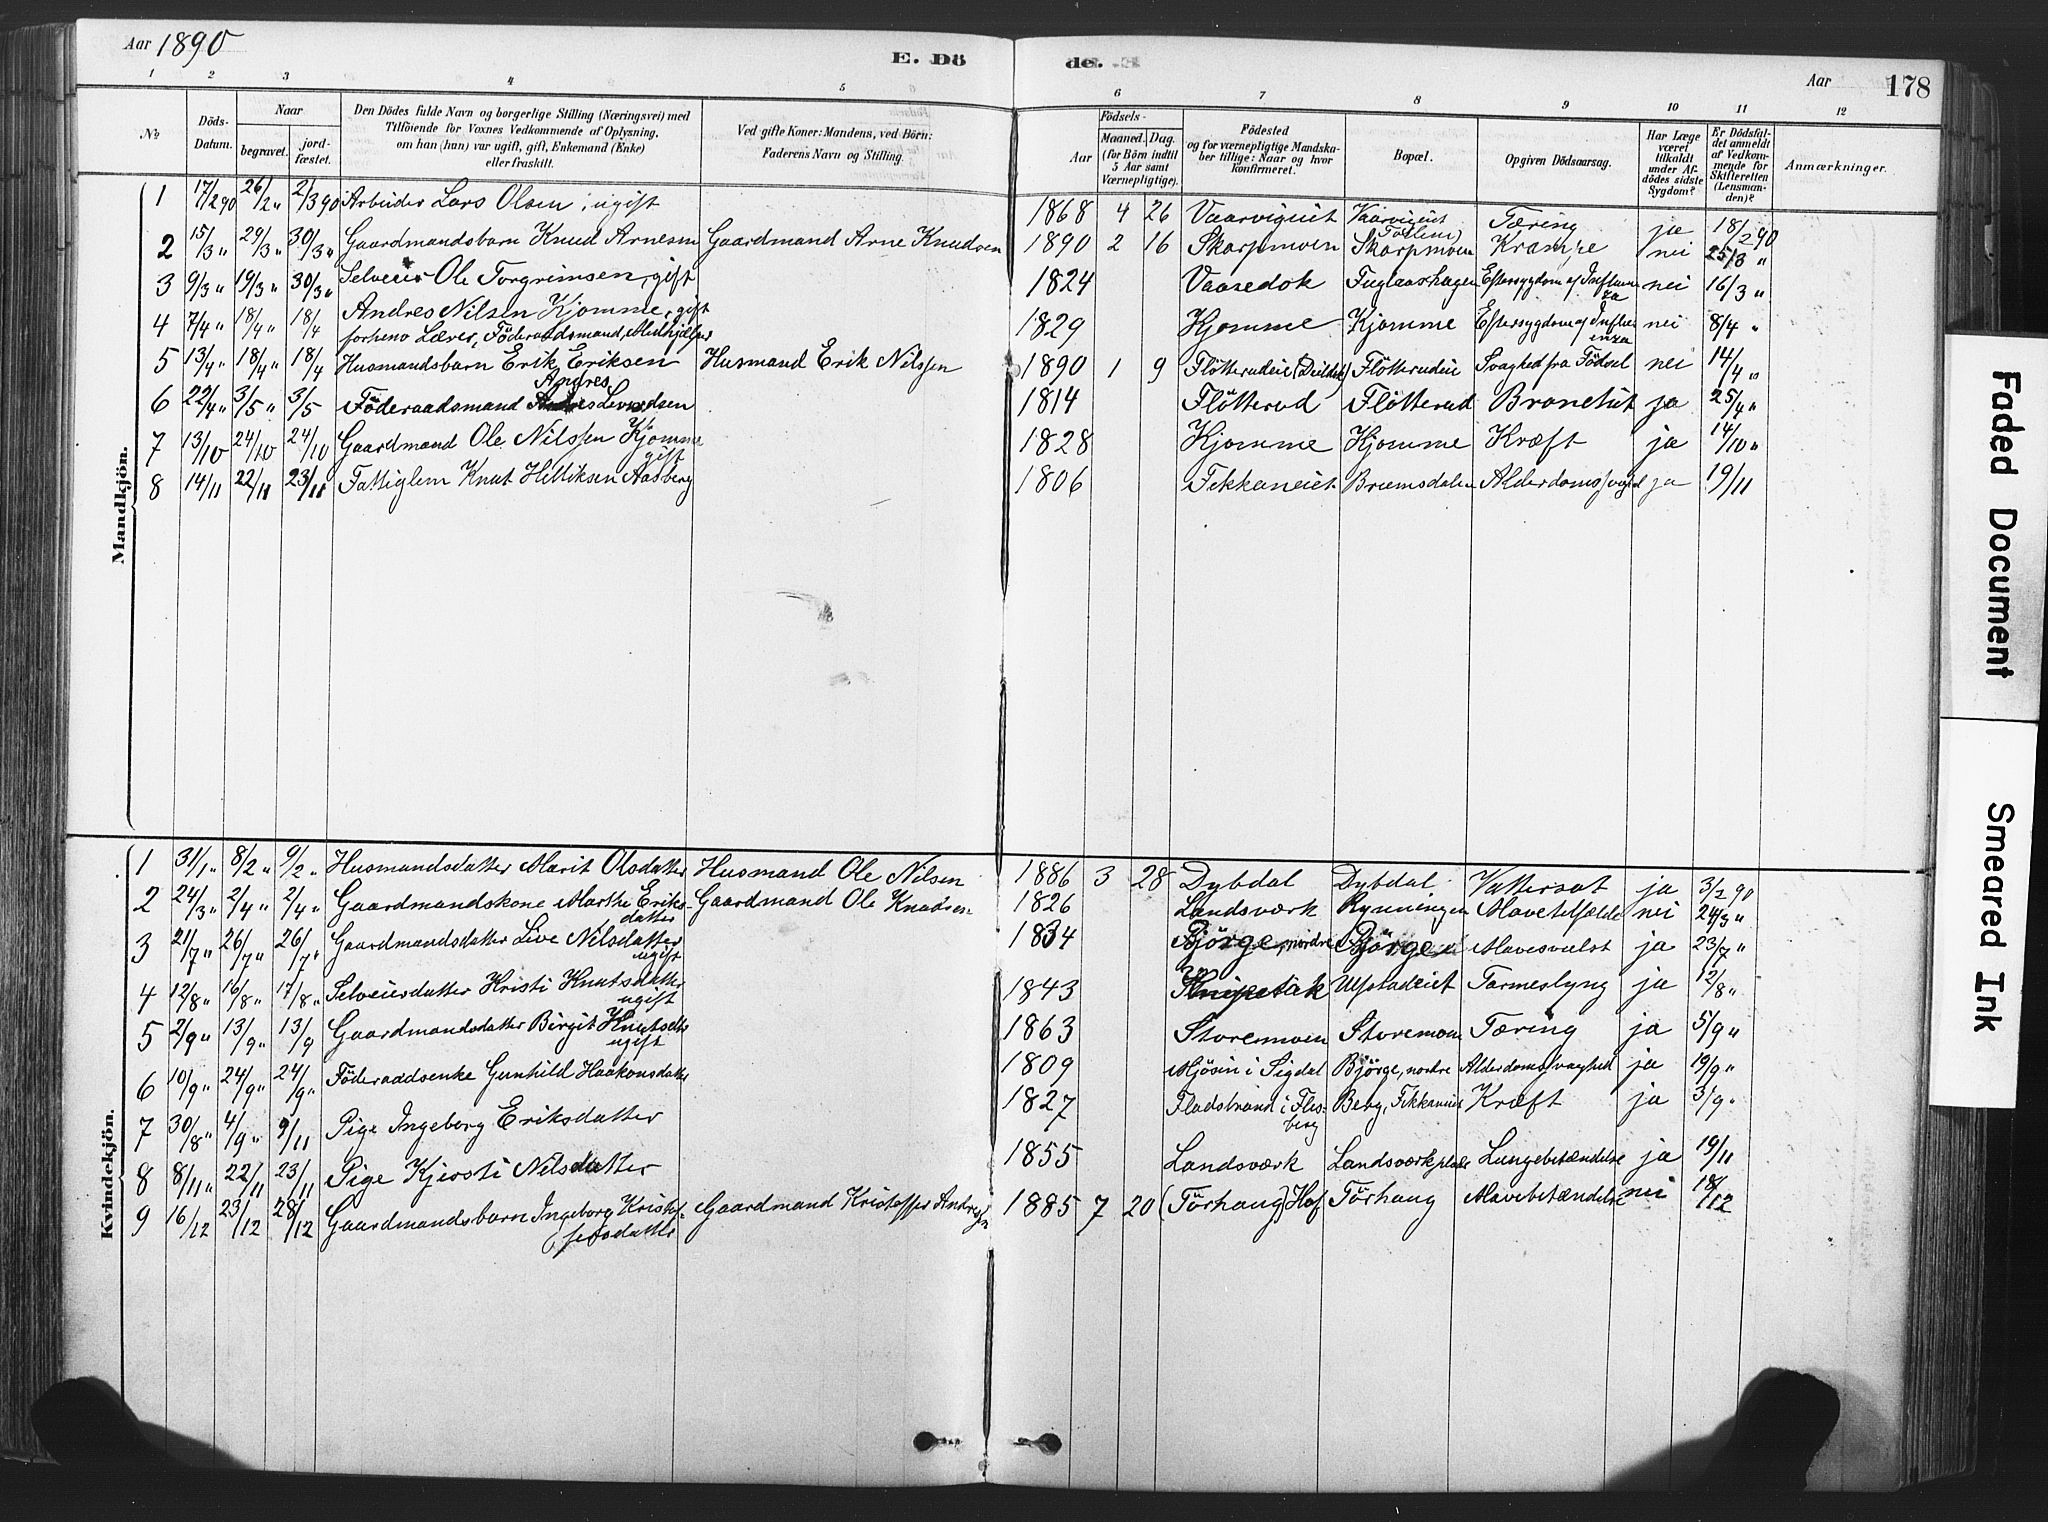 Aar 1890
E. Dö de.
Aar
178
1 2 3 4 5 6 7 8 9 10 11 12
No
Döds-Datum.
Naar
begravet.
jord-fæstet.
Den Dödes fulde Navn og borgerlige Stilling (Næringsvei) med
Tilföiende for Voxnes Vedkommende af Oplysning,
om han (hun) var ugift, gift, Enkemand (Enke)
eller fraskilt.
Ved gifte Koner: Mandens, ved Börn:
Faderens Navn og Stilling.
Födsels-
Aar
Maaned. Dag.
(for Börn indtil
5 Aar samt
Værnepligtige).
Födested
og for værnepligtige Mandska-
ber tillige: Naar og hvor
konfirmeret.
Bopæl.
Opgiven Dödsaarsag.
Har Læge
været
tilkaldt
under Af-
dödes sidste
Sygdom?
Er Dödsfal-
det anmeldt
af Vedkom-
mende for
Skifteretten
(Lensman-
den)?
Anmærkninger.
Mandkjön.
1 17/2 90 26/2 " 2/3 90 Arbeider Lars Olsen, ugift 1868 4 26 Vaarvigeiet Vaarvigeiet Tæring ja 18/2 90
2 15/3 " 29/3 " 30/3 " Gaardmandsbarn Knud Arnesen Gaardmand Arne Knudsen 1890 2 16 Skarpmoen Skarpmoen Krampe nei 25/3 "
3 9/3 " 19/3 " 30/3 " Selveier Ole Torgrimsen, gift 1824 Vaasedok Fuglaashagen Eftersygdom af Influenza nei 16/3 "
4 7/4 " 18/4 " 18/4 Andres Nilsen Kjomme, gift
forhenv Lærer, Föderaadsmand, Medhjælper 1829 Kjomme Kjomme Eftersygdom af Influenza nei 8/4 "
5 13/4 " 18/4 " 18/4 Husmandsbarn Erik Eriksen Husmand Erik Nilssen 1890 1 9 Flötterudeie Flötterudeie Svaghed fra Födsel nei 14/4 "
6 22/4 " 3/5 " 3/5 Föderaadsmand Andres 1814 Flötterud Flötterud ja 25/4 "
7 13/10 24/10 24/10 Gaardmand Ole Nilssen Kjomme
gift 1828 Kjomme Kjomme Kræft ja 14/10 "
8 14/11 22/11 23/11 Fattiglem Knut Helliksen Aasberg 1806 Fekkaneiet Bræmsdalen Alderdomssvaghed ja 19/11
Kvindekjön.
1 31/1 " 8/2 " 9/2 " Husmandsdatter Marit Olsdatter Husmand Ole Nilsen 1886 3 28 Dybdal Dybdal Vattersot ja 3/2 90
2 24/3 " 2/4 " 2/4 " Gaardmandskone Marthe Eriks-
datter Gaardmand Ole Knudsen 1826 Landsværk Rynningen nei 24/3 "
3 21/7 " 26/7 " 26/7 " Gaardmandsdatter Live Nilsdatter
ugift 1834 Bjørge, nordre Bjørge Mavesvulst ja 23/7 "
4 12/8 " 16/8 " 17/8 " Selveierdatter Kristi Knutsdatter
ugift 1843 Ulfstadeiet Tarmeslyng ja 12/8 "
5 2/9 " 13/9 " 13/9 Gaardmandsdatter Birgit Knutsdtr
ugift 1863 Storemoen Storemoen Tæring ja 5/9 "
6 10/9 " 24/9 " 24/9 " Föderaadsenke Gunhild Haakonsdatter 1809 Mjösin i Sigdal Bjørge, nordre Alderdomssvaghed ja 19/9 "
7 30/8 " 4/9 " 9/11 Pige Ingeborg Eriksdatter 1827 Fladstrand i Fles-
berg Berg, Fekkaneiet Kræft ja 3/9 "
8 8/11 " 22/11 23/11 Pige Kjersti Nilsdatter 1855 Landsværk Landsværkplads Lungebetændelse ja 19/11
9 16/12 23/12 28/12 Gaardmandsbarn Ingeborg Kristof-
fersdatter Gaardmand Kristoffer Andresen 1885 7 20 (Törhaug) Hof Törhaug Mavebetændelse nei 18/12
Faded Document
Smeared Ink